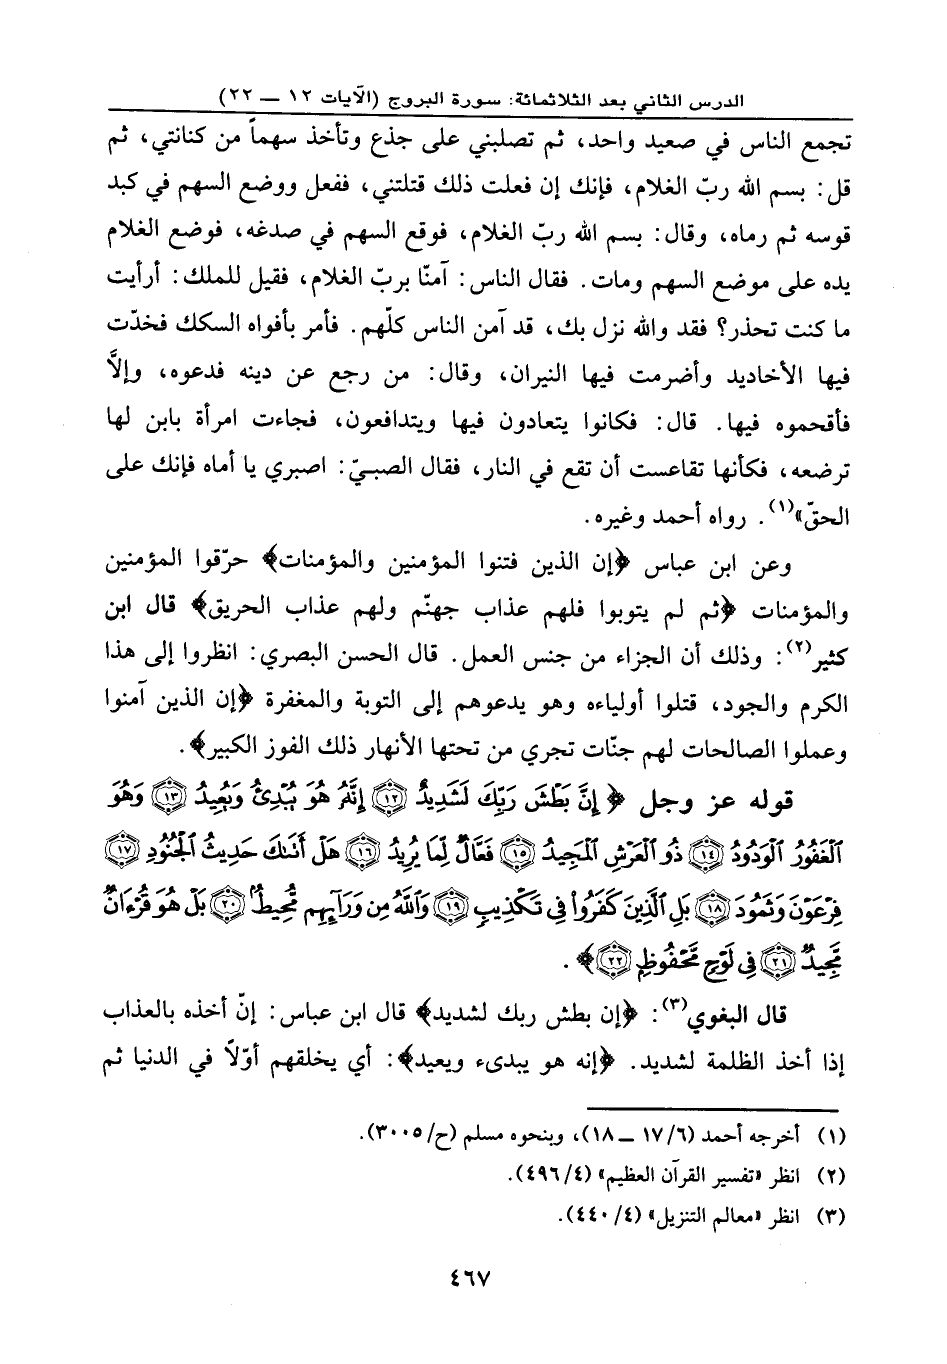 الدرس الثاني بعد الثلاثمائة: سورة البروج (الآيات ١٢ ــ ٢٢)
تجمع الناس في صعيد واحد، ثم تصلبني على جذع وتأخذ سهماً من كنانتي، ثم
قل: بسم الله ربّ الغلام، فإنك إن فعلت ذلك قتلتني، ففعل ووضع السهم في كبد
قوسه ثم رماه، وقال: بسم الله ربّ الغلام، فوقع السهم في صدغه، فوضع الغلام
يده على موضع السهم ومات. فقال الناس: آمنّا بربّ الغلام، فقيل للملك: أرأيت
ما كنت تحذر؟ فقد والله نزل بك، قد آمن الناس كلّهم. فأمر بأفواه السكك فخدّت
فيها الأخاديد وأضرمت فيها النيران، وقال: من رجع عن دينه فدعوه، وإلاَّ
فأقحموه فيها. قال: فكانوا يتعادون فيها ويتدافعون، فجاءت امرأة بابن لها
ترضعه، فكأنها تقاعست أن تقع في النار، فقال الصبيّ: اصبري يا أماه فإنك على
الحقّ»(١). رواه أحمد وغيره.
وعن ابن عباس ﴿إن الذين فتنوا المؤمنين والمؤمنات﴾ حرّقوا المؤمنين
والمؤمنات ﴿ثم لم يتوبوا فلهم عذاب جهنّم ولهم عذاب الحريق﴾ قال ابن
كثير(٢): وذلك أن الجزاء من جنس العمل. قال الحسن البصري: انظروا إلى هذا
الكرم والجود، قتلوا أولياءه وهو يدعوهم إلى التوبة والمغفرة ﴿إن الذين آمنوا
وعملوا الصالحات لهم جنّات تجري من تحتها الأنهار ذلك الفوز الكبير﴾.
قوله عز وجل ﴿إِنَّ بَطْشَ رَبِّكَ لَشَدِيدٌ ١٢ إِنَّهُ هُوَ يُبْدِئُ وَيُعِيدُ ١٣ وَهُوَ
ٱلْغَفُورُ ٱلْوَدُودُ ١٤ ذُو ٱلْعَرْشِ ٱلْمَجِيدُ ١٥ فَعَّالٌ لِّمَا يُرِيدُ ١٦ هَلْ أَتَىٰكَ حَدِيثُ ٱلْجُنُودِ ١٧
فِرْعَوْنَ وَثَمُودَ ١٨ بَلِ ٱلَّذِينَ كَفَرُواْ فِى تَكْذِيبٍ ١٩ وَٱللَّهُ مِن وَرَآئِهِم مُّحِيطٌ ٢٠ بَلْ هُوَ قُرْءَانٌ
مَّجِيدٌ ٢١ فِى لَوْحٍ مَّحْفُوظٍ ٢٢﴾.
قال البغوي(٣): ﴿إن بطش ربك لشديد﴾ قال ابن عباس: إنّ أخذه بالعذاب
إذا أخذ الظلمة لشديد. ﴿إنه هو يبدىء ويعيد﴾: أي يخلقهم أوّلاً في الدنيا ثم
(١) أخرجه أحمد (٦/ ١٧ ــ ١٨)، وبنحوه مسلم (ح/ ٣٠٠٥).
(٢) انظر «تفسير القرآن العظيم» (٤/ ٤٩٦).
(٣) انظر «معالم التنزيل» (٤/ ٤٤٠).
٤٦٧